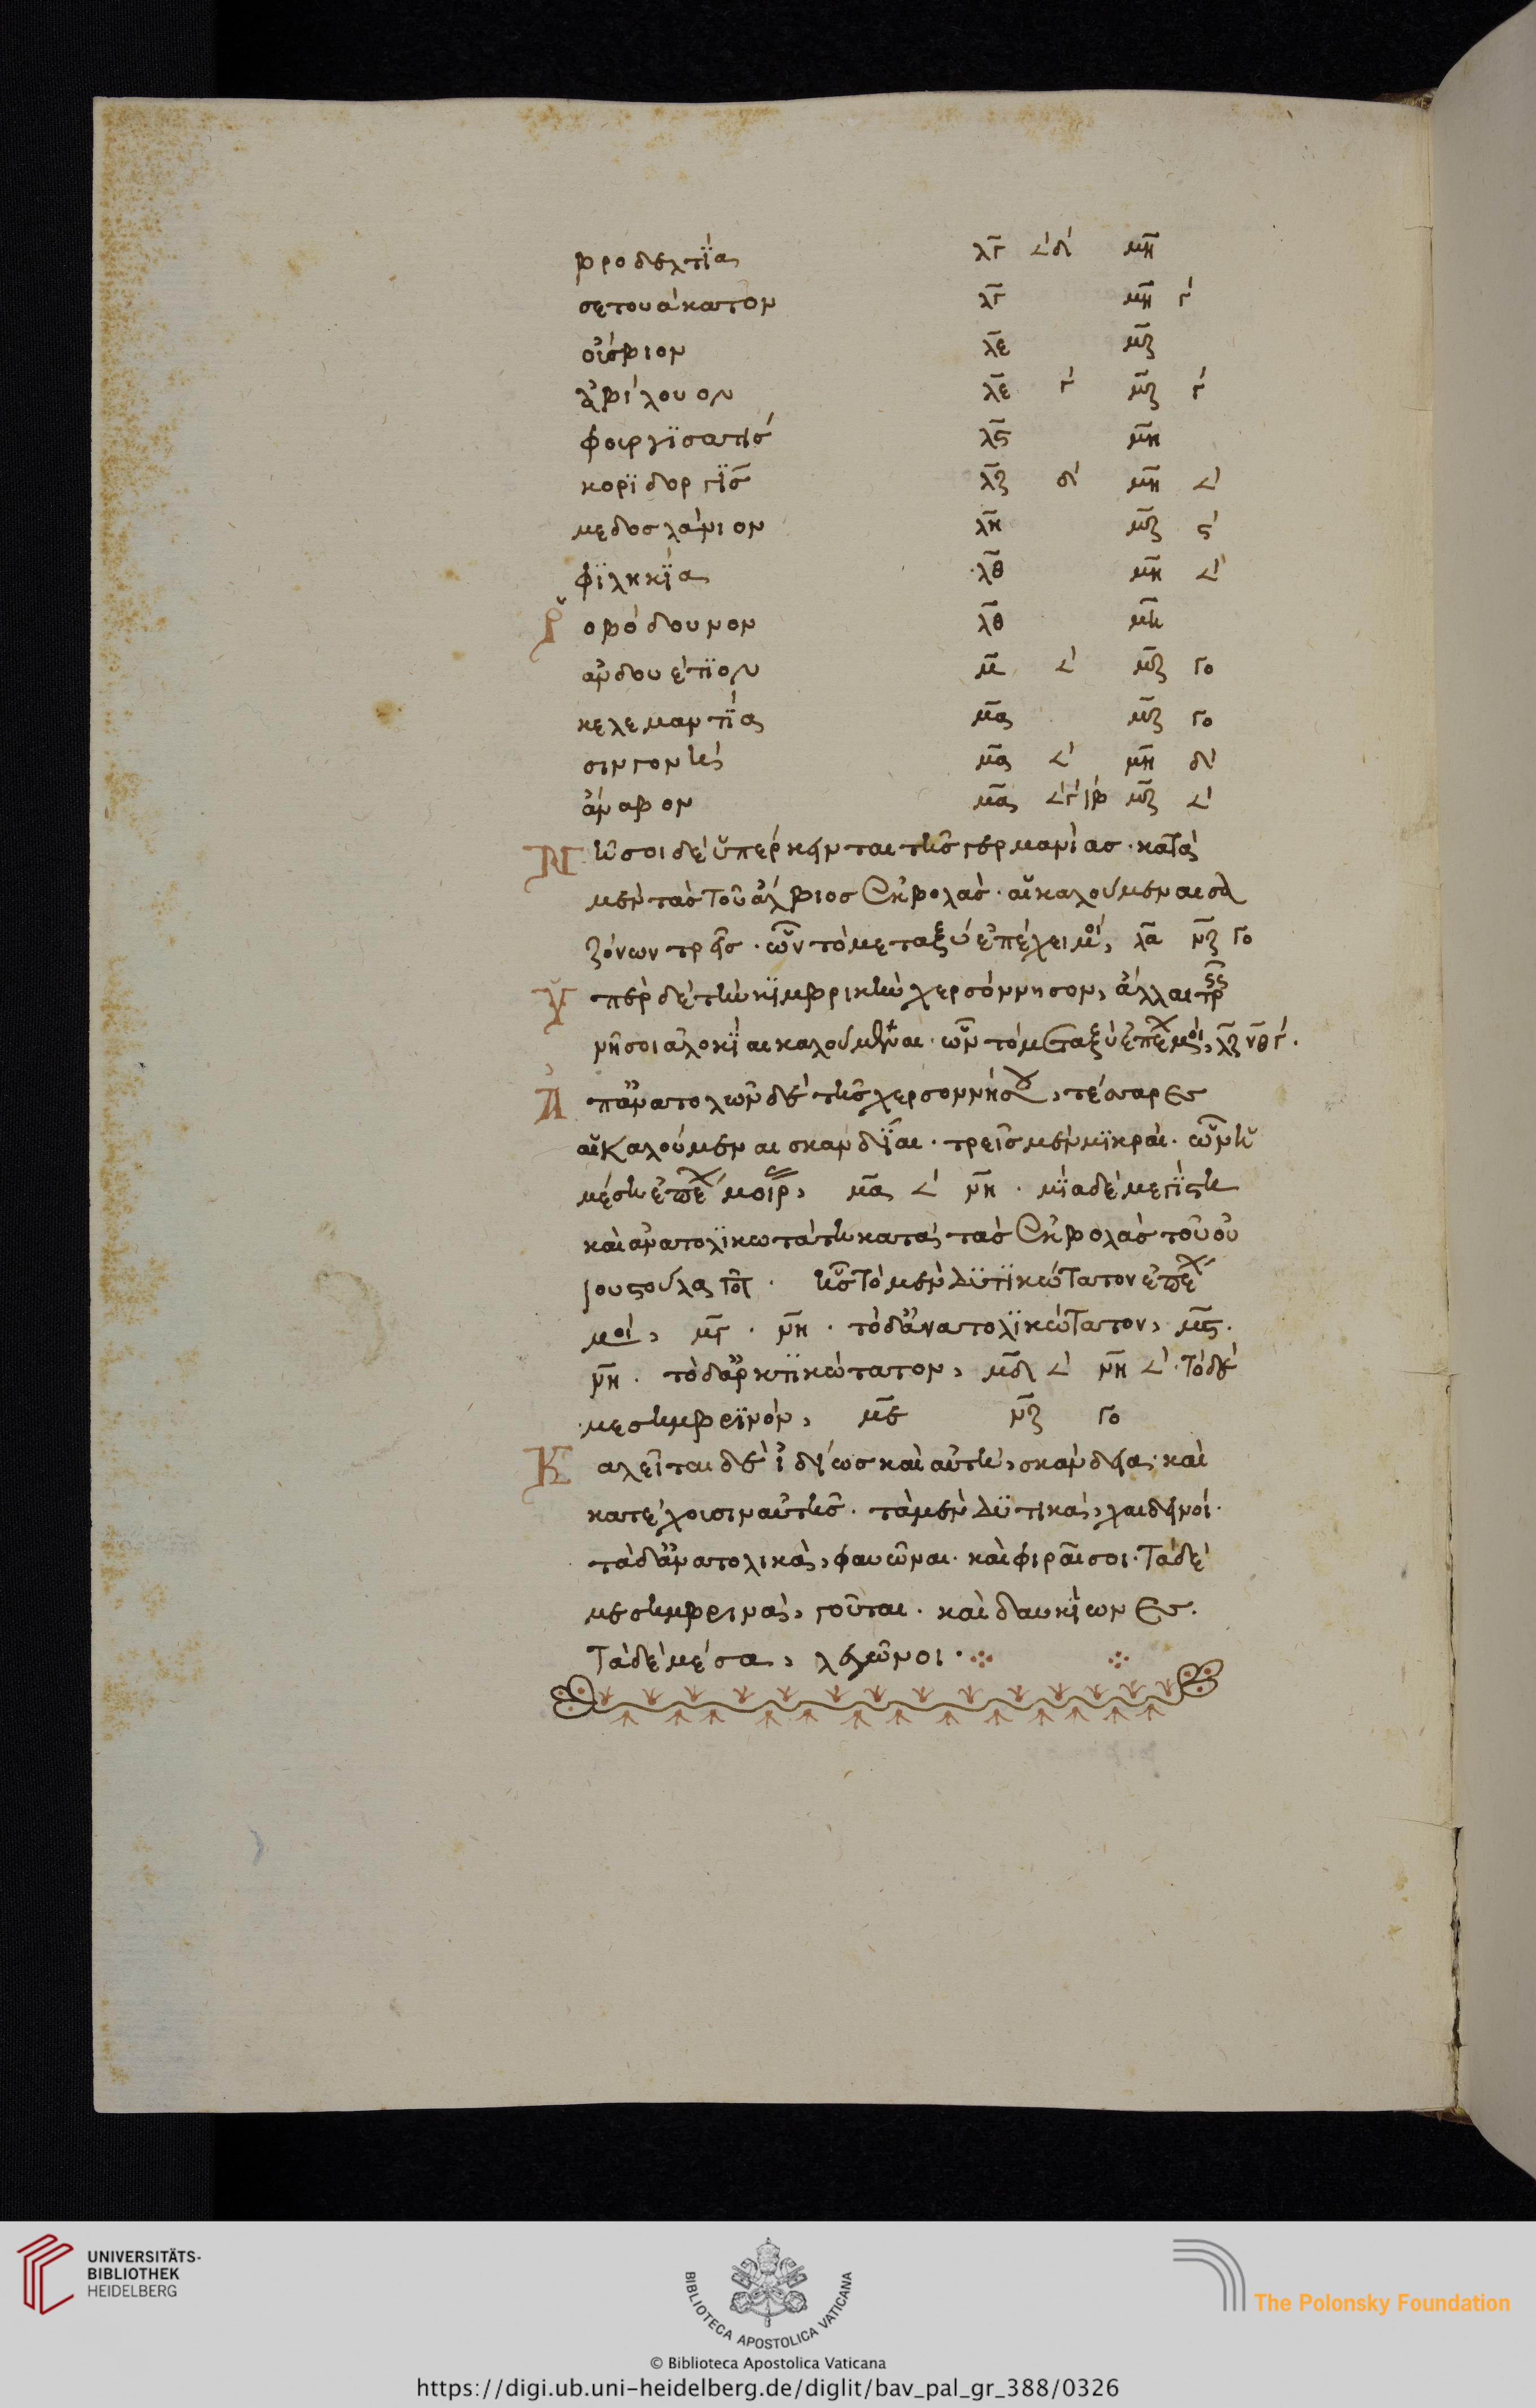 βροδεντϊά λγ ∠ʹδʹ μη
σετουάκατον λγ μη γʹ
οὐίσβιον λε μζ
ἀβίλουον λε γʹ μζ γʹ
φουργϊσατίσ λϛ μη
κορϊδοργϊσ λζ δʹ μη ∠ʹ
μεδοσλάνιον λη μζ ϛʹ
φϊληκϊά λθ μη ∠ʹ
Ῥοβόδουνον λθ μη
ἀνδουέτϊον μ ∠ʹ μζ γο
κελεμαντϊά μα μζ γο
σινγονή μα ∠ʹ μη δʹ
ἄναβον μα ∠ʹγʹιβ μζ ∠ʹ
Νῆσοι δὲ ὑπέρκεινται τῆσ γερμανίασ · κατὰ
μὲν τὰσ τοῦ ἄλβιοσ ἐκβολὰσ · αἱ καλούμεναι σα
ξόνων τρεῖσ · ὧν τὸ μεταξὺ ἐπέχει μοί, λα νζ γο
Ὑπὲρ δὲ τὴν κϊμβρικὴν χερσόννησον, ἄλλαι τρεῖς
νῆσοι ἀλοκϊαι καλούμεναι · ὧν τὸ μεταξὺ ἐπέχ μοί, λζ νθ γʹ ·
Ἀπ ἀνατολῶν δὲ τῆσ χερσοννήσου, τέσσαρεσ
αἱ καλούμεναι σκανδϊαι · τρεῖσ μὲν μϊκραὶ · ὧν ἡ
μέση ἐπέχ μοίρ, μα ∠ʹ νη · μϊα δὲ μεγϊστη
καὶ ἀνατολϊκωτάτη κατὰ τὰσ ἐκβολὰσ τοῦ οὐ
ϊουστούλα ποτ · ἧσ τὸ μὲν δυτϊκώτατον ἐπέχ
μοί, μγ · νη · τὸ δ' ἀνατολϊκώτατον, μϛ ·
νη · τὸ δ' ἀρκτϊκώτατον, μδ ∠ʹ νη ∠ʹ · τὸ δὲ
μεσημβρϊνόν, με νζ γο
Καλεῖται δὲ ἰδίωσ καὶ αὐτὴ, σκάνδεια · καὶ
κατέχουσιν αὐτῆσ · τὰ μὲν δυτικὰ, χαιδεινοί ·
τὰ δ' ἀνατολικὰ, φαυῶναι · καὶ φιραῖσοι · τὰ δὲ
μεσημβρινὰ, γοῦται · καὶ δαυκϊωνεσ ·
τὰ δὲ μέσα, λευῶνοι ·
UNIVERSITÄTS-
BIBLIOTHEK
HEIDELBERG
BIBLIOTECA APOSTOLICA VATICANA
The Polonsky Foundation
© Biblioteca Apostolica Vaticana
https://digi.ub.uni-heidelberg.de/diglit/bav_pal_gr_388/0326